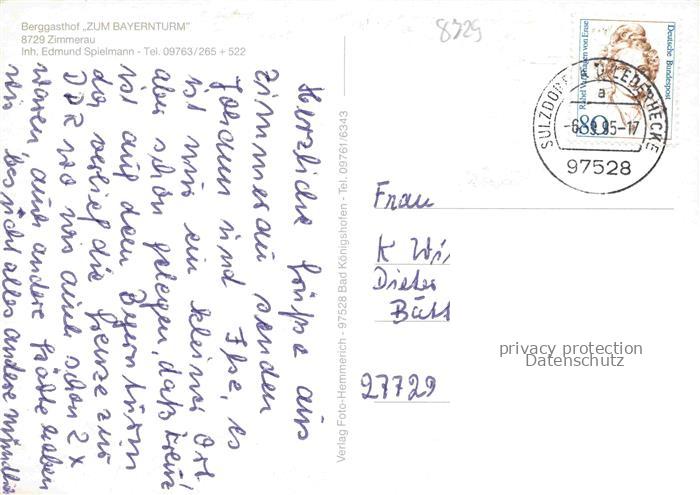 Berggasthof „ZUM BAYERNTURM"
8729 Zimmerau
Inh. Edmund Spielmann - Tel. 09763/265 + 522
Herzliche Grüße aus
Zimmerau senden
Johann und Ilse, es
ist nur ein kleiner Ort
aber schön gelegen, das
ist auf dem Bayernturm
da verlief die Grenze zur
DDR wo wir auch schon 2x
waren, auch andere Städte haben
wir besucht alles andere mündlich
Verlag Foto-Hemmerich - 97528 Bad Königshofen - Tel. 09761/6343
8729
Deutsche Bundespost
Rahel Varnhagen von Ense
80
SULZDORF A D LEDERHECKE
a
-6.9.95-17
97528
Frau
K Wi
Dieter
Bätt
27729
privacy protection
Datenschutz